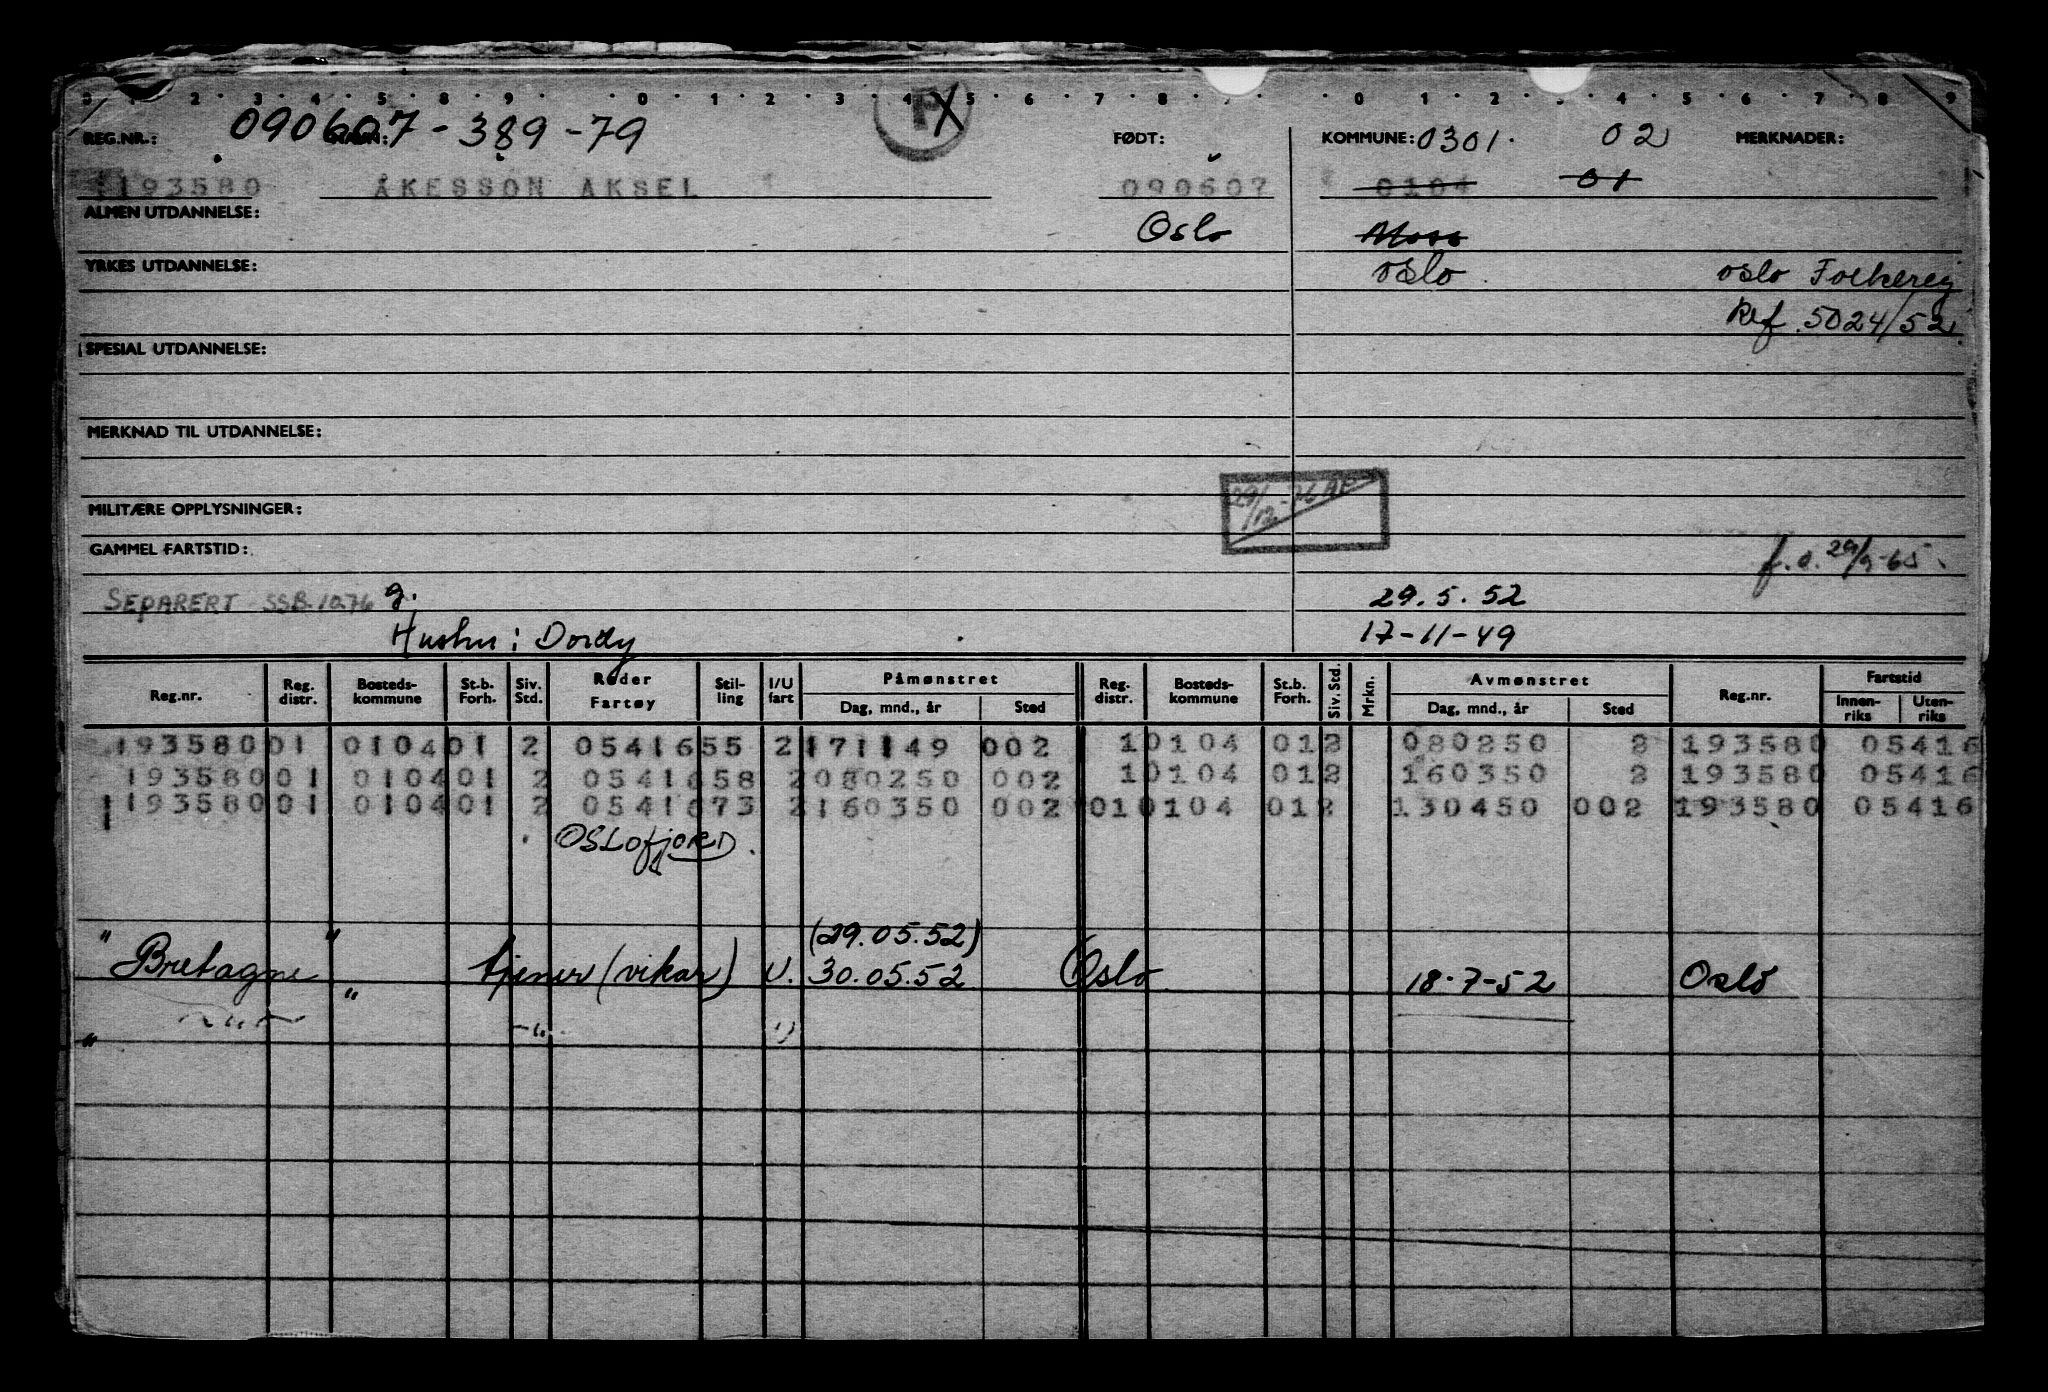 090607-389-79
REG.NR.: NAVN: FØDT: KOMMUNE: 0301. 02 MERKNADER:
193580 ÅKESSON AKSEL 090607 0104 01
ALMEN UTDANNELSE: Oslo Moss
YRKES UTDANNELSE: Oslo Oslo Folkereg
Ref. 5024/52
SPESIAL UTDANNELSE:
MERKNAD TIL UTDANNELSE:
MILITÆRE OPPLYSNINGER:
GAMMEL FARTSTID: f.o. 29/9-65.
SEPARERT SSB.1076 g. 29.5.52
Hustru: Dordy 17-11-49
Reg.nr. Reg. distr. Bosteds-kommune St.b. Forh. Siv. Std. Reder Fartøy Stil-ling I/U fart Påmønstret Dag, mnd., år Sted Reg. distr. Bosteds-kommune St.b. Forh. Siv. Std. Mrkn. Avmønstret Dag, mnd., år Sted Reg.nr. Fartstid Innen-riks Uten-riks
193580 01 0104 01 2 05416 55 2 171149 002 1 0104 01 2 080250 2 193580 05416
193580 01 0104 01 2 05416 58 2 080250 002 1 0104 01 2 160350 2 193580 05416
193580 01 0104 01 2 05416 73 2 160350 002 01 0104 01 2 130450 002 193580 05416
OSLOfjORD.
(29.05.52)
" Bretagne " tjener (vikar) U. 30.05.52 Oslo 18-7-52 Oslo